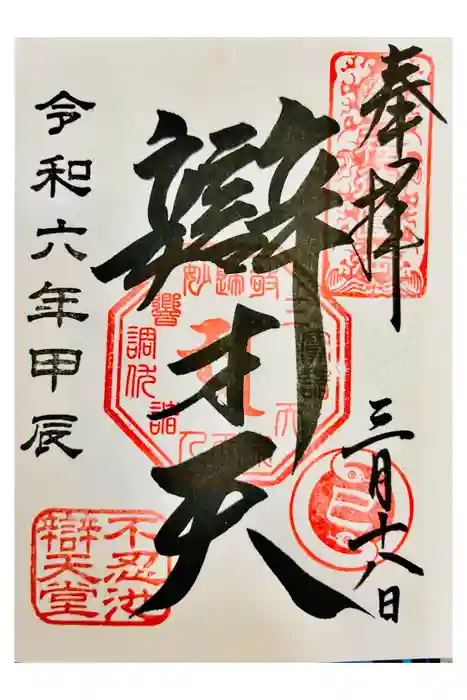 奉拝
三月十八日
辯才天
令和六年甲辰
不忍池
辯天堂